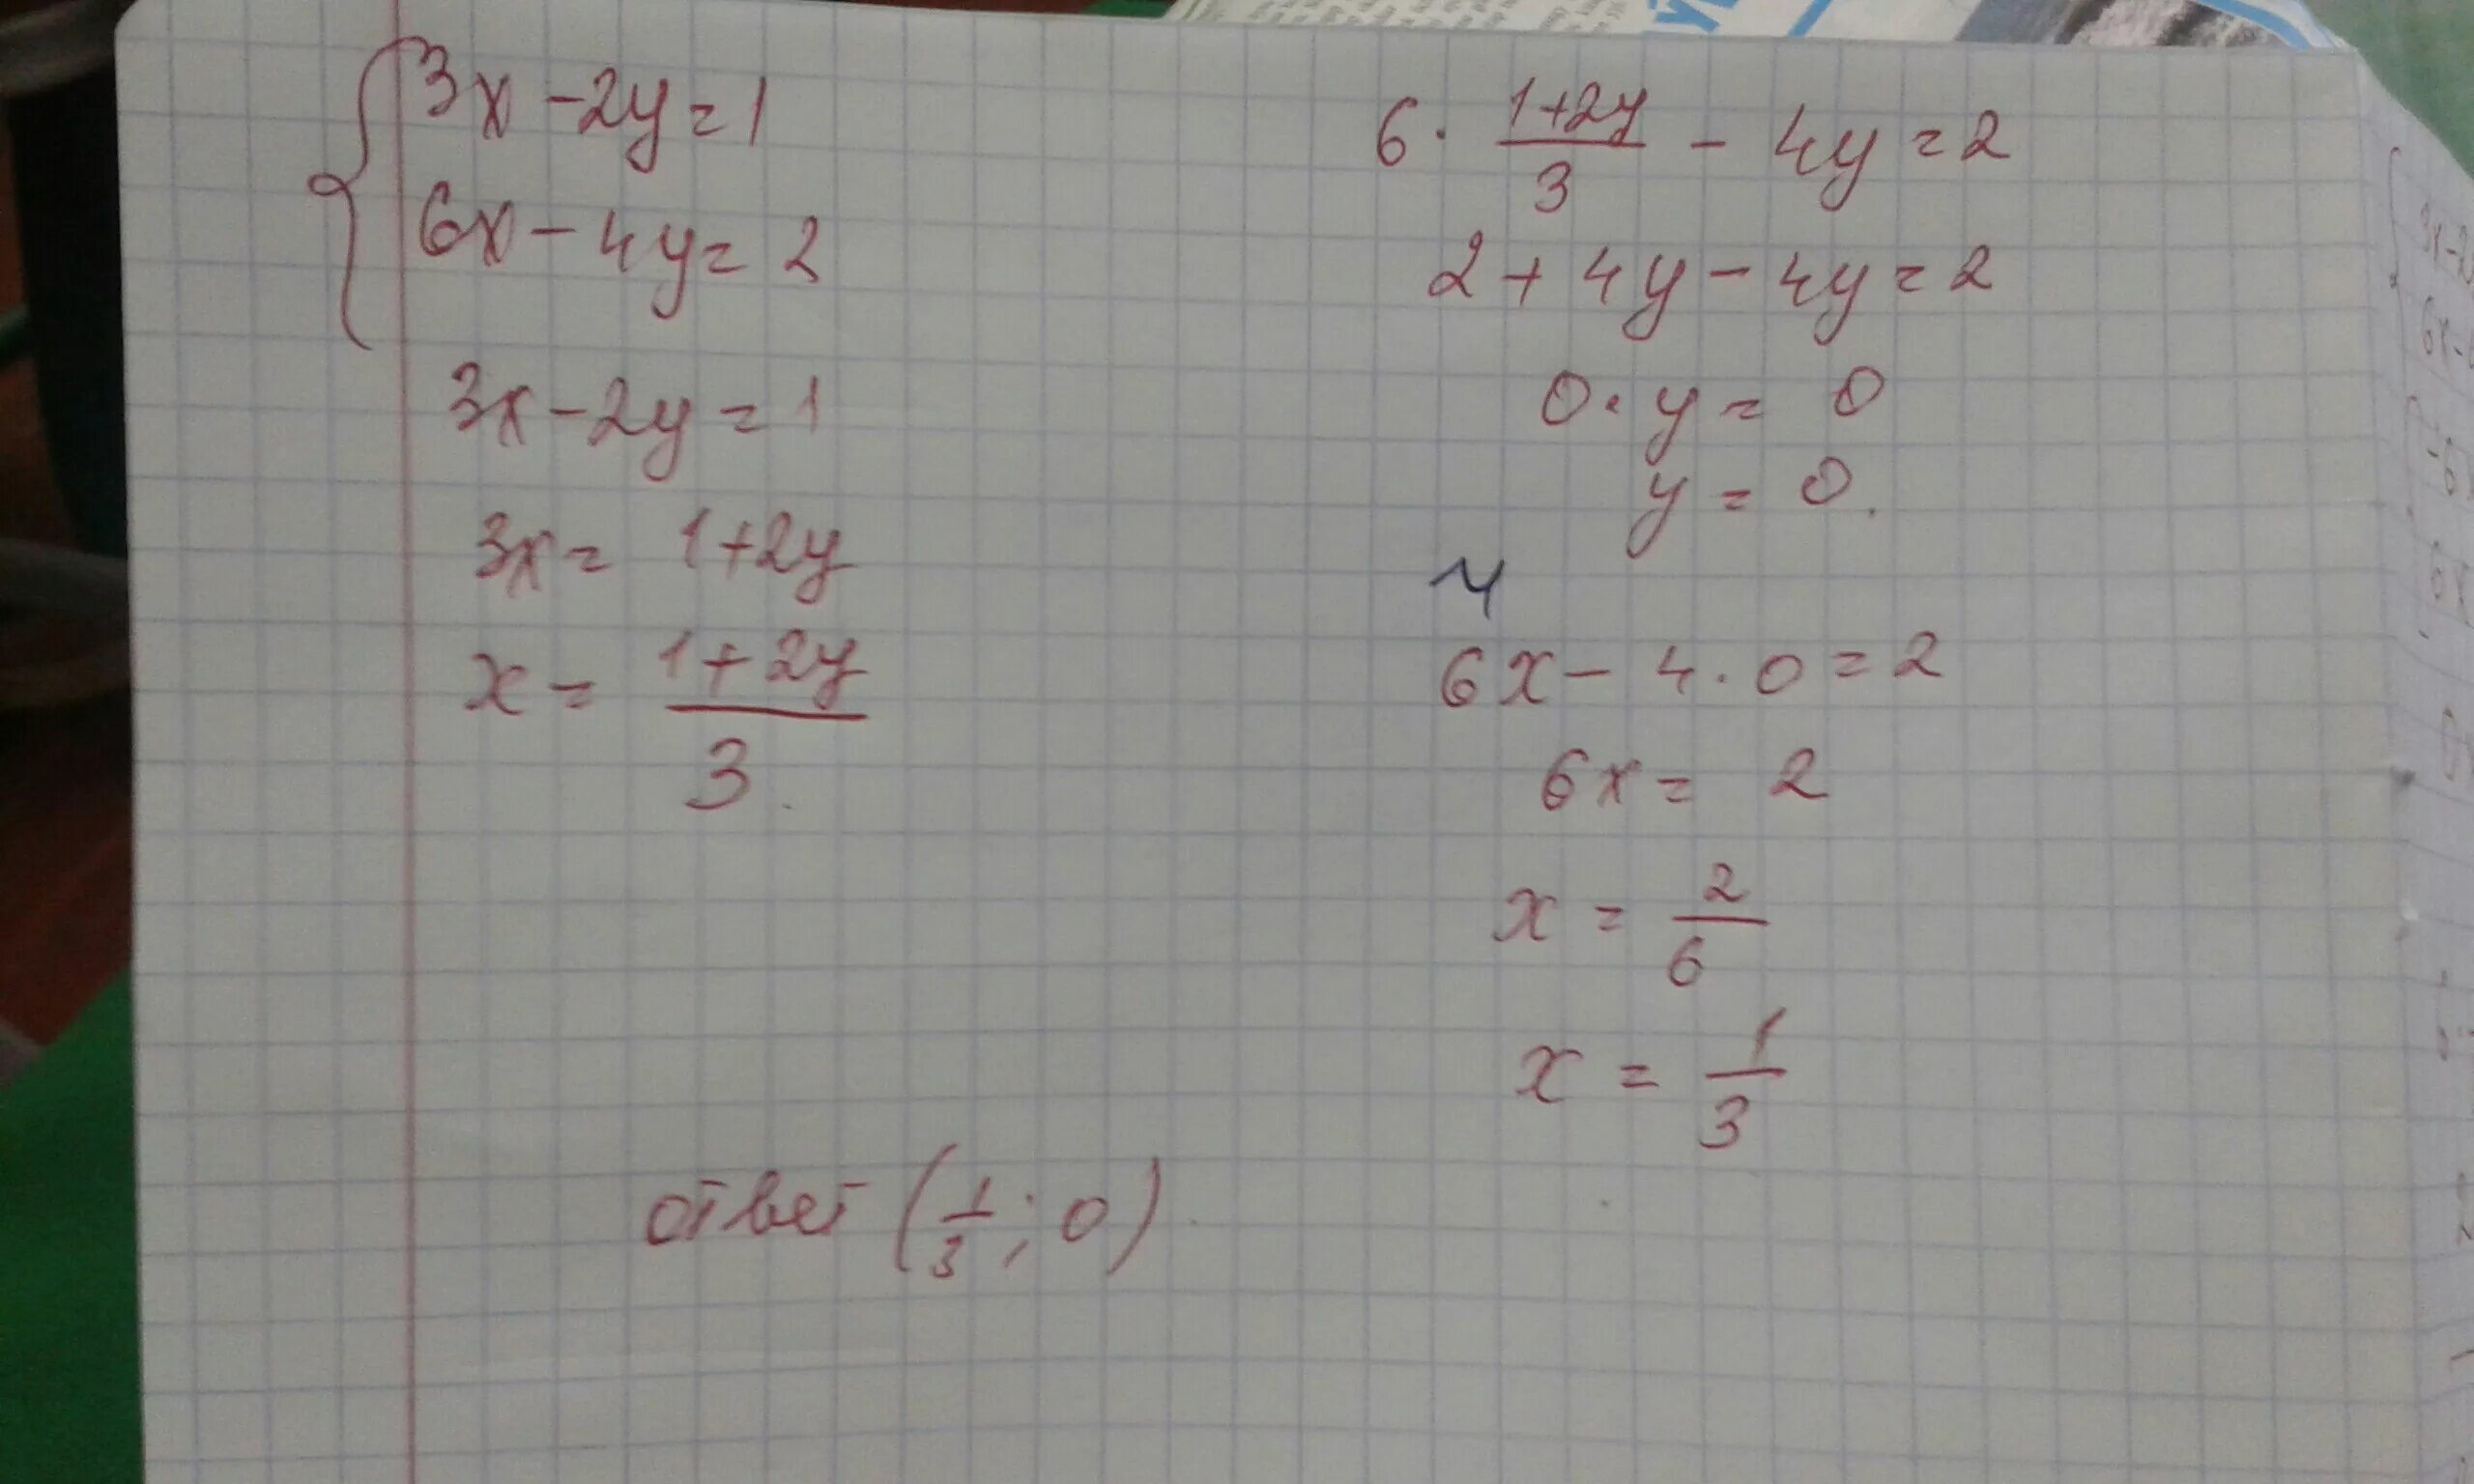 3x - 2y = 1
6x - 4y = 2
3x - 2y = 1
3x = 1+2y
x = (1+2y)/3.
6 · (1+2y)/3 - 4y = 2
2 + 4y - 4y = 2
0 · y = 0
y = 0.
6x - 4 · 0 = 2
6x = 2
x = 2/6
x = 1/3
ответ (1/3; 0)